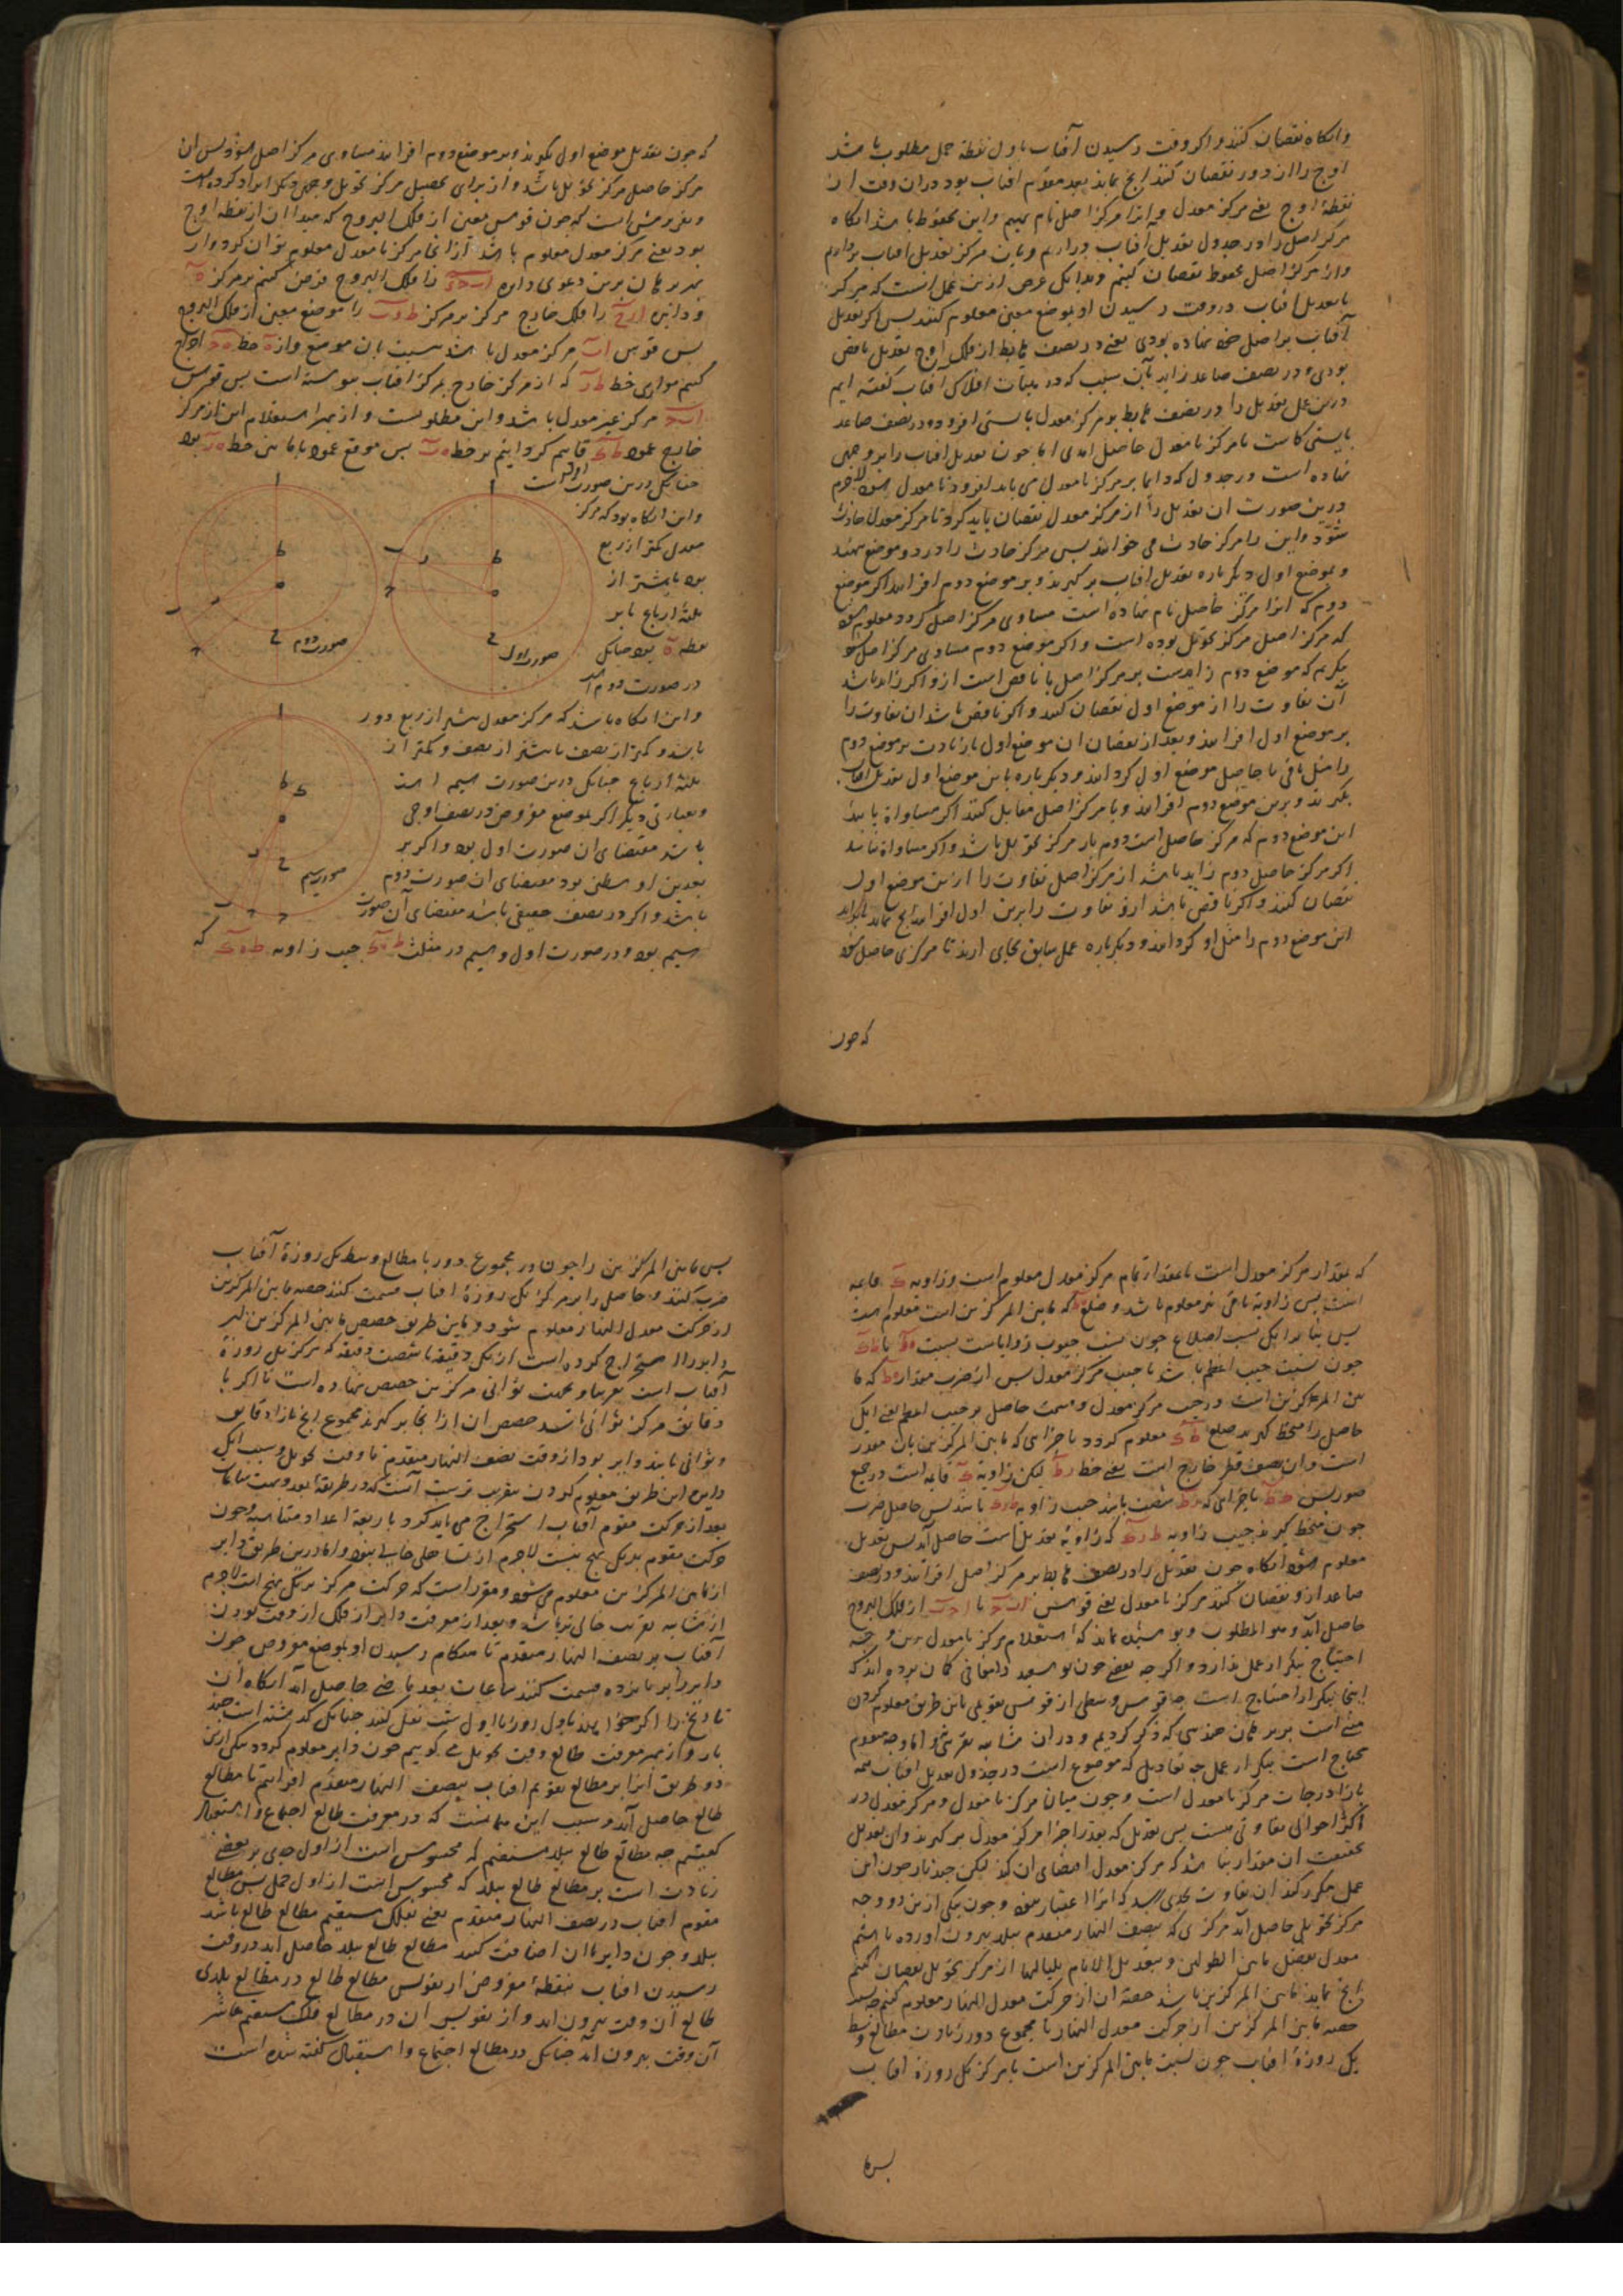 وانگاه نقصان کنند و اگر وقت رسیدن آفتاب باول نقطهٔ حمل مطلوب باشد
اوج را از دور نقصان کنند انچ بماند بعد مقوم افتاب بود دران وقت از
نقطهٔ اوج یعنی مرکز معدل و انرا مرکز اصل نام نهیم و این محفوظ باشد انگاه
مرکز اصل را در جدول تعدیل آفتاب در اریم و باین مرکز تعدیل افتاب برداریم
و از مرکز اصل محفوظ نقصان کنیم و بدانک غرض ازین عمل انست که مرکز
نامعدل افتاب در وقت رسیدن او بموضع معین معلوم کنند پس اگر تعدیل
آفتاب بر اصل خود نهاده بودی یعنی در نصف هابط از فلک اوج تعدیل ناقص
بودی و در نصف صاعد زاید بآن سبب که در بیان افلاک افتاب گفته ایم
درین عمل تعدیل را در نصف هابط بر مرکز معدل بایستی افزود و در نصف صاعد
بایستی کاست تا مرکز نامعدل حاصل امدی اما چون تعدیل افتاب را بر وجهی
نهاده است در جدول که دایما بر مرکز نامعدل می باید افزود تا معدل شود لاجرم
درین صورت ان تعدیل را از مرکز معدل نقصان باید کرد تا مرکز معدل حادث
شود و این را مرکز حادث می خوانند پس مرکز حادث را در دو موضع نهند
و بموضع اول دیگر باره تعدیل افتاب برگیرند و بر موضع دوم افزایند اگر موضع
دوم که انرا مرکز حاصل نام نهاده است مساوی مرکز اصل گردد معلوم شود
که مرکز اصل مرکز تحویل بوده است و اگر موضع دوم مساوی مرکز اصل نشود
بنگریم که موضع دوم زایدست بر مرکز اصل یا ناقص است ازو اگر زاید باشد
آن تفاوت را از موضع اول نقصان کنند و اگر ناقص باشد ان تفاوت را
بر موضع اول افزایند و بعد از نقصان ان موضع اول یا زیادت بر موضع دوم
را مثل باقی یا حاصل موضع اول گردانند و دیگر باره باین موضع اول تعدیل افتاب
بگیرند و برین موضع دوم افزایند و با مرکز اصل مقابل کنند اگر مساواة یابند
این موضع دوم که مرکز حاصل است دوم بار مرکز تحویل باشد و اگر مساواة نیابند
اگر مرکز حاصل دوم زاید باشد از مرکز اصل تفاوت را ازین موضع اول
نقصان کنند و اگر ناقص باشد ازو تفاوت را برین اول افزایند انچ بماند یا براید
این موضع دوم را مثل او گردانند و دیگر باره عمل سابق بجای ارند تا مرکزی حاصل شود
که چون
که چون تعدیل موضع اول بگیرند و بر موضع دوم افزایند مساوی مرکز اصل شود پس ان
مرکز حاصل مرکز تحویل باشد و از برای تحصیل مرکز تحویل وجهی دیگر ایراد کرده است
و تقریرش است که چون قوسی معین از فلک البروج که مبدا ان از نقطه اوج
بود یعنی مرکز معدل معلوم باشد ازانجا مرکز نامعدل معلوم توان کرد و از
بهر برهان برین دعوی دایره ا ب ح را فلک البروج فرض کنیم بر مرکز ه
و دایره ا ر ح را فلک خارج مرکز بر مرکز ط و ب را موضع معین از فلک البروج
پس قوس ا ب مرکز معدل باشد نسبت بان موضع و از ه خط ه ح اخراج
کنیم موازی خط ط ر که از مرکز خارج بمرکز افتاب پیوسته است پس قوس
ا ب ح مرکز غیر معدل باشد و این مطلوبست و از بهر استعلام این از مرکز
خارج عمود ط ک قایم گردانیم بر خط ه ب پس موقع عمود یا مابین خط ه ر بود
چنانک درین صورت اول است
و این انگاه بود که مرکز
معدل کمتر از ربع
بود یا بیشتر از
ثلثهٔ ارباع یا بر
نقطه ه بود چنانک
در صورت دوم است
و این انگاه باشد که مرکز معدل بیشتر از ربع دور
باشد و کمتر از نصف یا بیشتر از نصف و کمتر از
ثلثهٔ ارباع چنانک درین صورت سیم است
و بعبارتی دیگر اگر موضع مفروض در نصف اوجی
باشد مقتضای ان صورت اول بود و اگر بر
بعدین اوسطین بود مقتضای ان صورت دوم
باشد و اگر در نصف حضیضی باشد مقتضای آن صورت
سیم بود و در صورت اول و سیم در مثلث ط ه ک جیب زاویه ط ه ک که
صورت اول
صورت دوم
صورت سیم
که بمقدار مرکز معدل است یا بمقدار تمام مرکز معدل معلوم است و زاویه ک قایمه
است پس زاویه باقی نیز معلوم باشد و ضلع ه ط که مابین المرکزین است معلوم است
پس بنا برانک نسبت اضلاع چون نسبت جیوب زوایاست نسبت ه ط با ط ک
چون نسبت جیب اعظم باشد با جیب مرکز معدل پس از ضرب مقدار ه ط که ما
بین المرکزین است در جیب مرکز معدل و قسمت حاصل بر جیب اعظم یعنی انک
حاصل را منحط گیرند ضلع ط ک معلوم گردد باجزایی که مابین المرکزین بان مقدر
است و ان نصف قطر خارج است یعنی خط ر ط لیکن زاویه ک قایمه است در جمیع
صور پس ط ک باجزایی که ر ط شصت باشد جیب زاویه ط ر ک باشد پس حاصل ضرب
چون منحط گیرند جیب زاویه ط ر ک که زاویهٔ تعدیل است حاصل آید پس تعدیل
معلوم شود انگاه چون تعدیل را در نصف هابط بر مرکز اصل افزایند و در نصف
صاعد ازو نقصان کنند مرکز نامعدل یعنی قوس ا ب ح یا ا ح ب از فلک البروج
حاصل آید و هو المطلوب و پوشیده نماند که استعلام مرکز نامعدل برین وجه
احتیاج بتکرار عمل ندارد و اگرچه بعضی چون ابو سعید دامغانی گمان برده اند که
اینجا بتکرار احتیاج است چه قوس وسطی از قوس تقویمی باین طریق معلوم کردن
مبنی است بر برهان هندسی که ذکر کردیم و دران شایبه تقریب نیست اما وجه مقدم
محتاج است بتکرار عمل چه تعادیل که موضوع است در جدول تعدیل افتاب همه
بازا درجات مرکز نامعدل است و چون میان مرکز نامعدل و مرکز معدل در
اکثر احوال تفاوتی هست پس تعدیل که بقدر اجزا مرکز معدل برگیرند و ان تعدیل
بحقیقت ان مقدار نباشد که مرکز معدل اقتضای ان کند لیکن چند بار چون این
عمل مکرر کنند ان تفاوت بحدی رسد که انرا اعتبار نبود و چون بیکی ازین دو وجه
مرکز تحویلی حاصل آید مرکزی که بنصف النهار متقدم ببلد بیرون اورده باشیم
معدل بفضل مابین الطولین و بتعدیل الایام بلیالیها از مرکز تحویل نقصان کنیم
انچ بماند مابین المرکزین باشد حصهٔ ان از حرکت معدل النهار معلوم کنیم چه نسبت
حصه مابین المرکزین از حرکت معدل النهار با مجموع دور و زیادت مطالع وسط
یک روزهٔ افتاب چون نسبت مابین المرکزین است با مرکز یک روزهٔ افتاب
پس ما
پس مابین المرکزین را چون در مجموع دور با مطالع وسط یک روزهٔ آفتاب
ضرب کنند و حاصل را بر مرکز یک روزهٔ افتاب قسمت کنند حصه مابین المرکزین
از حرکت معدل النهار معلوم شود و باین طریق حصص مابین المرکزین
دایر را استخراج کرده است از یک دقیقه تا شصت دقیقه که مرکز یک روزهٔ
آفتاب است تقریبا و بجهت ثوانی مرکزین حصص نهاده است تا اگر با
دقایق مرکز ثوانی باشد حصص ان ازانجا برگیرند مجموع انچ بازا دقایق
و ثوانی یابند دایر بود از وقت نصف النهار متقدم تا وقت تحویل و سبب انک
دایر باین طریق معلوم کردن بتقریب ترست آنست که در طریقهٔ بعد و قسمت ساعات
بعد از حرکت مقوم آفتاب استخراج می باید کرد باربعهٔ اعداد متناسبه و چون
حرکت مقوم بر یک نهج نیست لاجرم از تساهلی خالی نبود و اما درین طریق دایر
از مابین المرکزین معلوم می شود و مقرر است که حرکت مرکز بر یک نهج است لاجرم
از شایبه تقریب خالی تر باشد و بعد از معرفت دایر از فلک از وقت بودن
آفتاب بر نصف النهار متقدم تا هنگام رسیدن او بموضع مفروض چون
دایر را بر پانزده قسمت کنند ساعات بعد ماضی حاصل آید انگاه ان
تاریخ را اگر خواهند باول روز یا اول شب نقل کنند چنانک گذشته است چند
بار و از بهر معرفت طالع وقت تحویل می گوییم چون دایر معلوم گردد بیکی ازین
دو طریق انرا بر مطالع تقویم افتاب بنصف النهار متقدم افزاییم تا مطالع
طالع حاصل آید و سبب این همانست که در معرفت طالع اجتماع و استقبال
گفتیم چه مطالع طالع ببلد مستقیم که محسوبس است از اول جدی بر بعضی
زیادت است بر مطالع طالع ببلد که محسوبس است از اول حمل پس مطالع
مقوم افتاب در نصف النهار متقدم یعنی بفلک مستقیم مطالع طالع باشد
ببلد و چون دایر باان اضافت کنند مطالع طالع ببلد حاصل آید در وقت
رسیدن افتاب بنقطهٔ مفروض از تقویس مطالع طالع در مطالع بلدی
طالع آن وقت بیرون اید و از تقویس ان در مطالع فلک مستقیم عاشر
آن وقت بیرون آید چنانک در مطالع اجتماع و استقبال گفته شده است